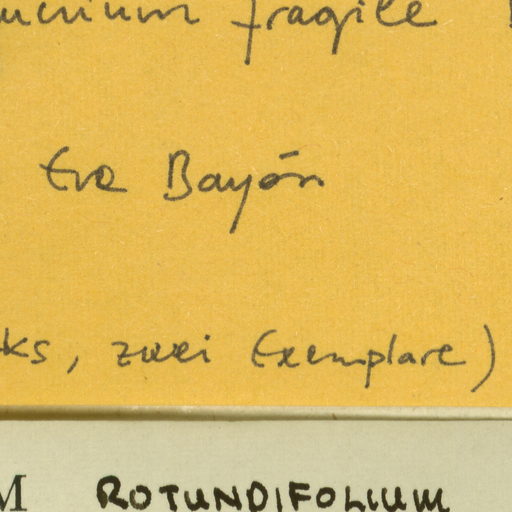 ucrium fragile
Eva Bayón
ks, zwei Exemplare)
M ROTUNDIFOLIUM